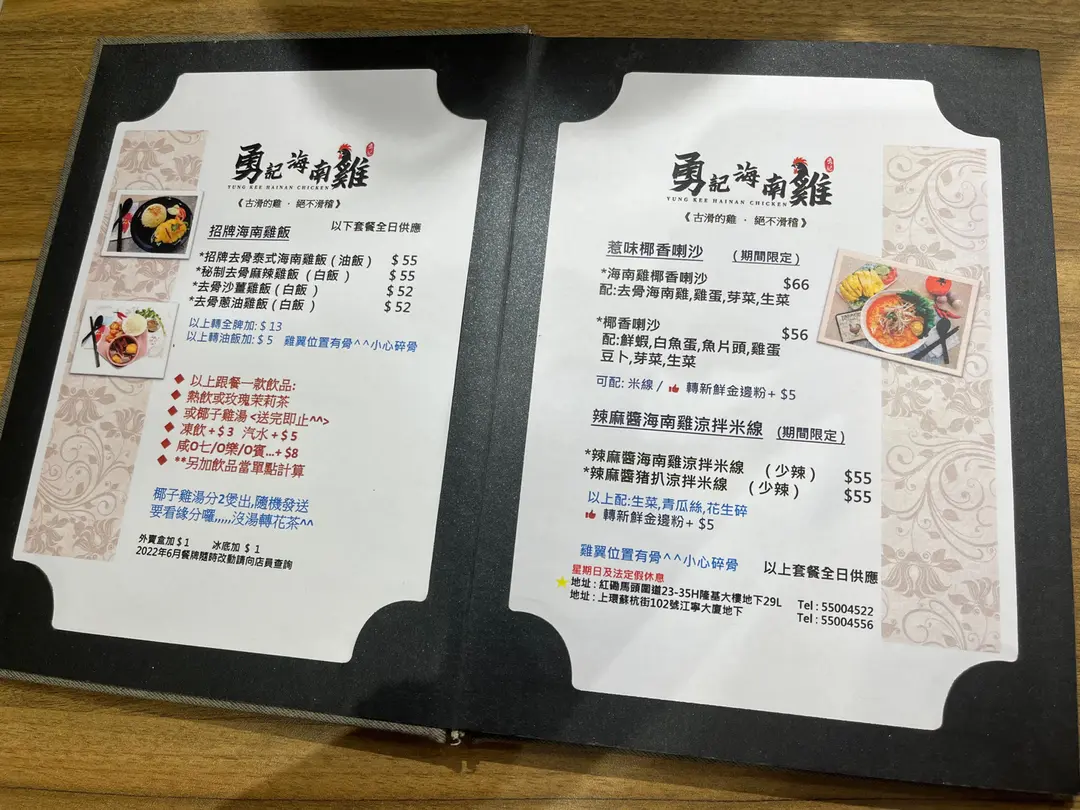 勇記海南雞
YUNG KEE HAINAN CHICKEN
《古滑的雞 · 絕不滑稽》
招牌海南雞飯 以下套餐全日供應
*招牌去骨泰式海南雞飯 ( 油飯 ) $ 55
*秘制去骨麻辣雞飯 ( 白飯 ) $ 55
*去骨沙薑雞飯 ( 白飯 ) $ 52
*去骨蔥油雞飯 ( 白飯 ) $ 52
以上轉全髀加: $ 13
以上轉油飯加: $ 5 雞翼位置有骨^^小心碎骨
以上跟餐一款飲品:
熱飲或玫瑰茉莉茶
或椰子雞湯 <送完即止^^>
凍飲 + $ 3 汽水 + $ 5
咸O七/O樂/O賓...+ $8
**另加飲品當單點計算
椰子雞湯分2煲出,隨機發送
要看緣分囉,,,,,沒湯轉花茶^^
外賣盒加 $ 1 冰底加 $ 1
2022年6月餐牌隨時改動請向店員查詢
勇記海南雞
YUNG KEE HAINAN CHICKEN
《古滑的雞 · 絕不滑稽》
惹味椰香喇沙 (期間限定)
*海南雞椰香喇沙 $66
配:去骨海南雞,雞蛋,芽菜,生菜
*椰香喇沙 $56
配:鮮蝦,白魚蛋,魚片頭,雞蛋
豆卜,芽菜,生菜
可配: 米線 / 轉新鮮金邊粉 + $5
辣麻醬海南雞涼拌米線 (期間限定)
*辣麻醬海南雞涼拌米線 (少辣) $55
*辣麻醬猪扒涼拌米線 (少辣) $55
以上配:生菜,青瓜絲,花生碎
轉新鮮金邊粉+ $5
雞翼位置有骨^^小心碎骨 以上套餐全日供應
星期日及法定假休息
地址 : 紅磡馬頭圍道23-35H隆基大樓地下29L Tel : 55004522
地址 : 上環蘇杭街102號江寧大廈地下 Tel : 55004556